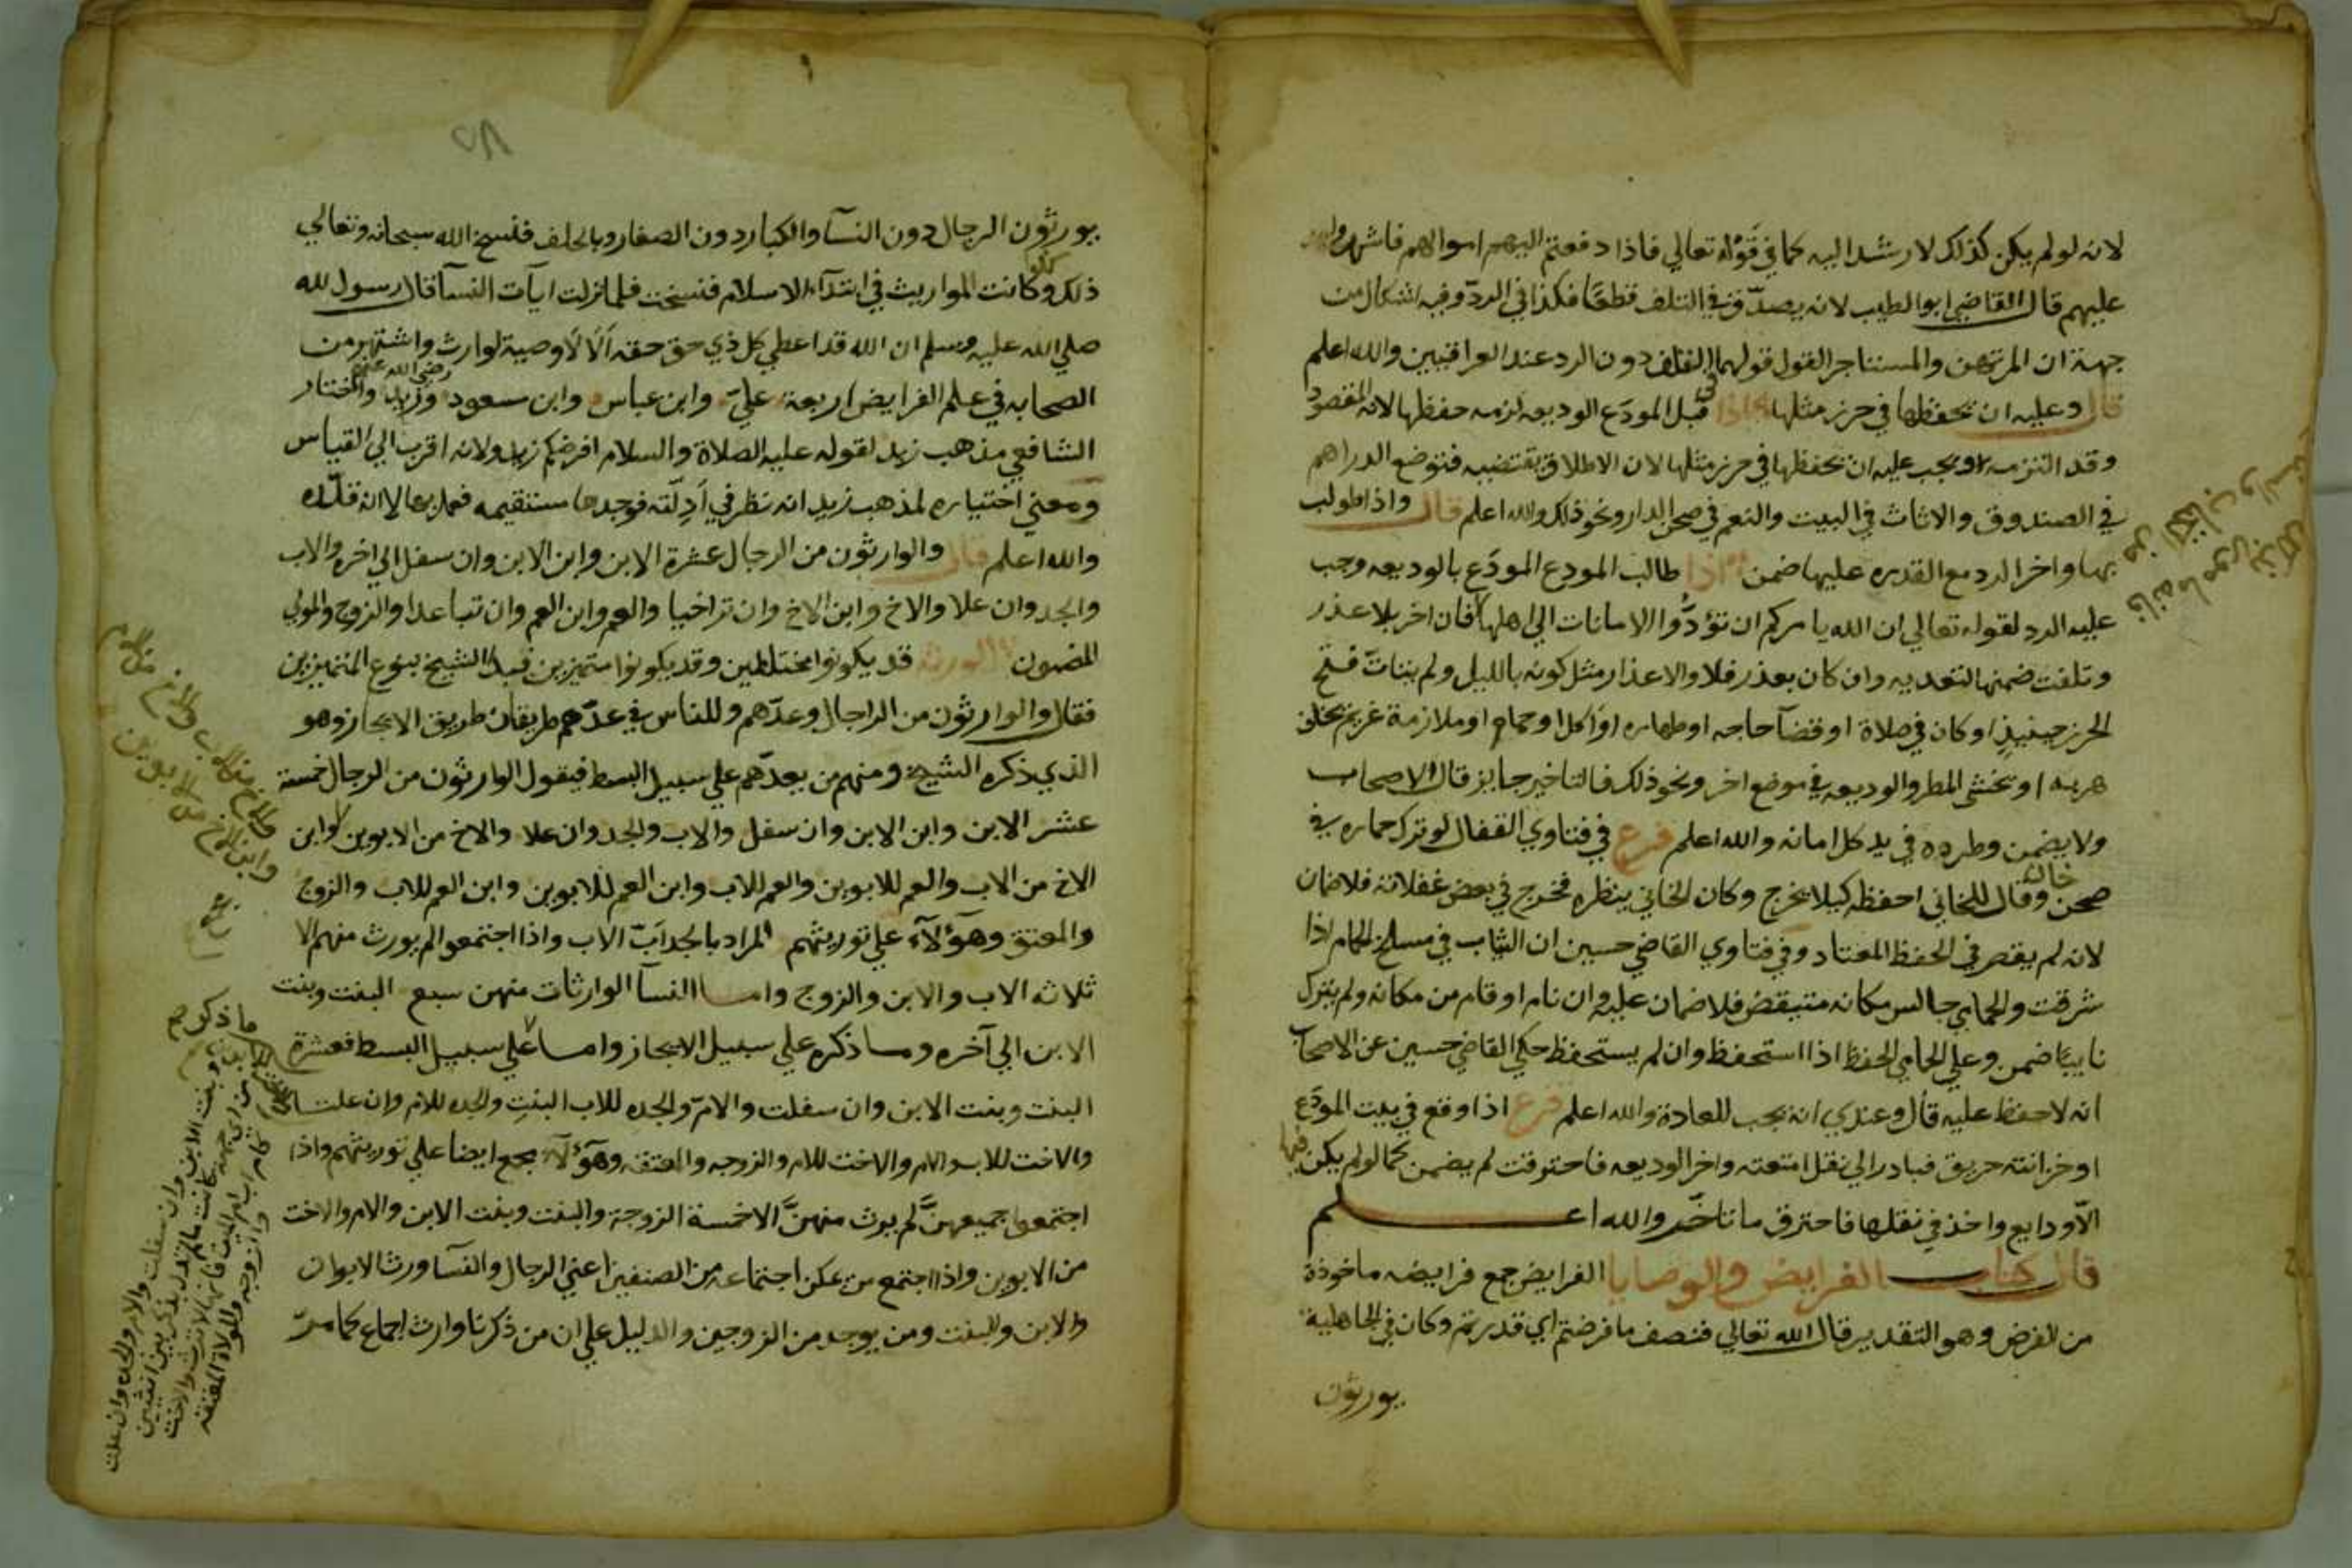 لانه لو لم يكن كذلك لارشد اليه كما في قوله تعالي فاذا دفعتم اليهم اموالهم فاشهدوا
عليهم قال القاضي ابو الطيب لانه يصدق في التلف قطعا فكذا في الرد وفيه اشكال من
جهة ان المرتهن والمستاجر القول قولهما في التلف دون الرد عند العراقيين والله اعلم
قال وعليه ان يحفظها في حرز مثلها اذا قبل المودع الوديعه لزمه حفظها لانه المقصود
وقد التزمه ويجب عليه ان يحفظها في حرز مثلها لان الاطلاق يقتضيه فتوضع الدراهم
في الصندوق والاثاث في البيت والنعم في صحن الدار ونحو ذلك والله اعلم قال واذا طولب
بها واخر الرد مع القدره عليها ضمن اذا طالب المودع المودع بالوديعه وجب
عليه الرد لقوله تعالي ان الله يامركم ان تؤدوا الامانات الي اهلها فان اخر بلا عذر
وتلفت ضمنها لتعديه وان كان بعذر فلا والاعذار مثل كونه بالليل ولم يتات فتح
الحرز حينيذ او كان في صلاة او قضا حاجه او طهاره او اكل او حمام او ملازمة غريم يخاف
هربه او يخشي المطر والوديعه في موضع اخر ونحو ذلك فالتاخير جايز قال الاصحاب
ولا يضمن وطردوه في يد كل امانه والله اعلم فرع في فتاوي القفال لو ترك حماره في
صحن خان وقال للخاني احفظه كيلا يخرج وكان الخاني ينظره فخرج في بعض غفلاته فلا ضمان
لانه لم يقصر في الحفظ المعتاد وفي فتاوي القاضي حسين ان الثياب في مسلخ الحمام اذا
سرقت والحمامي جالس مكانه متيقض فلا ضمان عليه وان نام او قام من مكانه ولم يترك
نايبا ضمن وعلي الحمامي الحفظ اذا استحفظ وان لم يستحفظ حكي القاضي حسين عن الاصحاب
انه لا حفظ عليه قال وعندي انه يجب للعادة والله اعلم فرع اذا وقع في بيت المودع
او خزانته حريق فبادر الي نقل امتعته واخر الوديعه فاحترقت لم يضمن كما لو لم يكن فيها
الا ودايع واخذ في نقلها فاحترق ما تاخر والله اعلم
قال كتاب الفرايض والوصايا الفرايض جمع فرايضه ماخوذة
من الفرض وهو التقدير قال الله تعالي فنصف ما فرضتم اي قدرتم وكان في الجاهلية
يورثون
يورثون الرجال دون النسا والكبار دون الصغار وبالحلف فنسخ الله سبحانه وتعالي
ذلك وكانت المواريث في ابتدآء الاسلام فنسخت فلما نزلت ايآت النسآ قال رسول الله
صلي الله عليه وسلم ان الله قد اعطي كل ذي حق حقه ألا لا وصية لوارث واشتهر من
الصحابه في علم الفرايض اربعة علي وابن عباس وابن مسعود وزيد رضي الله عنهم واختار
الشافعي مذهب زيد لقوله عليه الصلاة والسلام افرضكم زيد ولانه اقرب الي القياس
ومعني اختياره لمذهب زيد انه نظر في أدلته فوجدها مستقيمه فعمل بها لا انه قلده
والله اعلم قال والوارثون من الرجال عشرة الابن وابن الابن وان سفل الي اخره والاب
والجد وان علا والاخ وابن الاخ وان تراخيا والعم وابن العم وان تباعدا والزوج والمولي
المضون الورثة قد يكونوا مختلطين وقد يكونوا متميزين فبدا الشيخ بنوع المتميزين
فقال والوارثون من الرجال وعدهم وللناس في عدهم طريقان طريق الايجاز وهو
الذي ذكره الشيخ ومنهم من يعدهم علي سبيل البسط فيقول الوارثون من الرجال خمسة
عشر الابن وابن الابن وان سفل والاب والجد وان علا والاخ من الابوين وابن
الاخ من الاب والعم للابوين والعم للاب وابن العم للابوين وابن العم للاب والزوج
والمعتق وهؤلآء علي توريثهم المراد بالجد اب الاب واذا اجتمعوا لم يورث منهم الا
ثلاثه الاب والابن والزوج واما النسآ الوارثات منهن سبع البنت وبنت
الابن الي آخره وما ذكره علي سبيل الايجاز واما علي سبيل البسط فعشرة
البنت وبنت الابن وان سفلت والام والجده للاب البنت والجده للام وان علتا
والاخت للاب والام والاخت للام والزوجه والمعتقه وهؤلآء مجمع ايضا علي توريثهم واذا
اجتمعوا جميعهن لم يورث منهن الا خمسة الزوجة والبنت وبنت الابن والام والاخت
من الابوين واذا اجتمع من يمكن اجتماعه من الصنفين اعني الرجال والنسآ ورث الابوان
والابن والبنت ومن يوجد من الزوجين والدليل علي ان من ذكرنا وارث اجماع كما مر